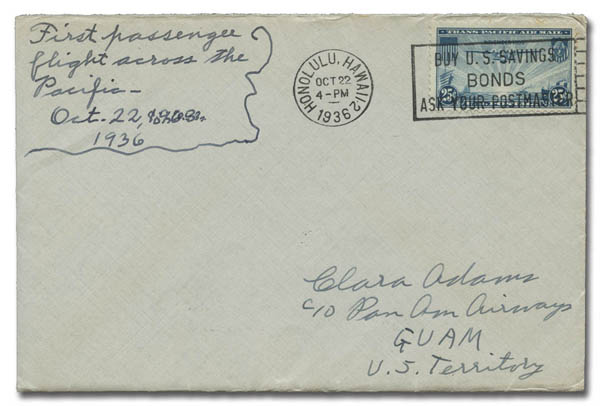 First passenger
flight across the
Pacific –
Oct. 22,
1936
HONOLULU, HAWAII 2
OCT 22
4 - PM
1936
TRANS-PACIFIC AIR MAIL
BUY U.S. SAVINGS
BONDS
ASK YOUR POSTMASTER
25¢ 25¢
Clara Adams
c/o Pan Am Airways
GUAM
U.S. Territory